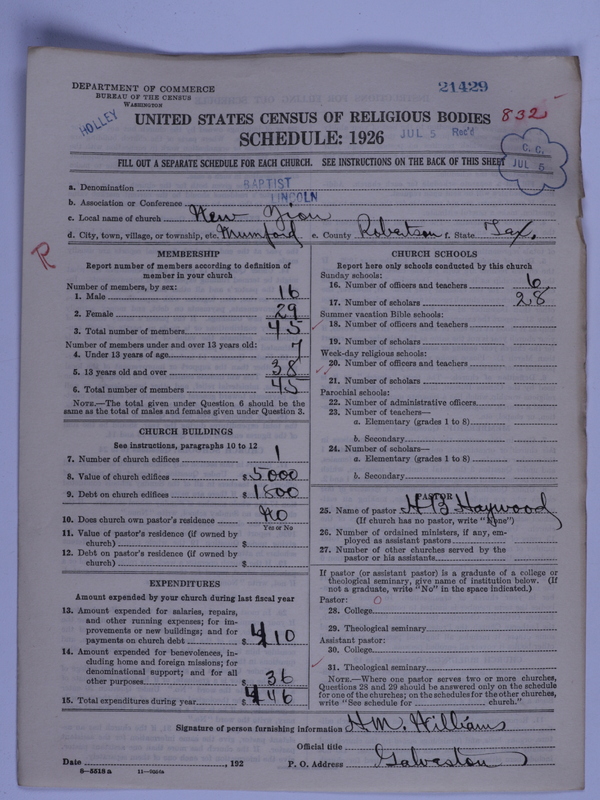 DEPARTMENT OF COMMERCE
BUREAU OF THE CENSUS
WASHINGTON
21429
HOLLEY
UNITED STATES CENSUS OF RELIGIOUS BODIES 832
SCHEDULE: 1926
JUL 5 Rec'd
C. C.
JUL 5
FILL OUT A SEPARATE SCHEDULE FOR EACH CHURCH. SEE INSTRUCTIONS ON THE BACK OF THIS SHEET
a. Denomination BAPTIST
b. Association or Conference LINCOLN
c. Local name of church New Zion
d. City, town, village, or township, etc. Mumford e. County Robertson f. State Tax.
R
MEMBERSHIP
Report number of members according to definition of
member in your church
Number of members, by sex:
1. Male 16
2. Female 29
3. Total number of members 45
Number of members under and over 13 years old:
4. Under 13 years of age 7
5. 13 years old and over 38
6. Total number of members 45
NOTE.—The total given under Question 6 should be the
same as the total of males and females given under Question 3.
CHURCH BUILDINGS
See instructions, paragraphs 10 to 12
7. Number of church edifices 1
8. Value of church edifices $5000
9. Debt on church edifices $1800
10. Does church own pastor's residence No
Yes or No
11. Value of pastor's residence (if owned by
church) $
12. Debt on pastor's residence (if owned by
church) $
EXPENDITURES
Amount expended by your church during last fiscal year
13. Amount expended for salaries, repairs,
and other running expenses; for im-
provements or new buildings; and for
payments on church debt $410
14. Amount expended for benevolences, in-
cluding home and foreign missions; for
denominational support; and for all
other purposes $36
15. Total expenditures during year $446
CHURCH SCHOOLS
Report here only schools conducted by this church
Sunday schools:
16. Number of officers and teachers 6
17. Number of scholars 28
Summer vacation Bible schools:
18. Number of officers and teachers
19. Number of scholars
Week-day religious schools:
20. Number of officers and teachers
21. Number of scholars
Parochial schools:
22. Number of administrative officers
23. Number of teachers—
a. Elementary (grades 1 to 8)
b. Secondary
24. Number of scholars—
a. Elementary (grades 1 to 8)
b. Secondary
PASTOR
25. Name of pastor H B Haywood
(If church has no pastor, write "None")
26. Number of ordained ministers, if any, em-
ployed as assistant pastors
27. Number of other churches served by the
pastor or his assistants
If pastor (or assistant pastor) is a graduate of a college or
theological seminary, give name of institution below. (If
not a graduate, write "No" in the space indicated.)
Pastor: 0
28. College
29. Theological seminary
Assistant pastor:
30. College
31. Theological seminary
NOTE.—Where one pastor serves two or more churches,
Questions 28 and 29 should be answered only on the schedule
for one of the churches; on the schedules for the other churches,
write "See schedule for church."
Signature of person furnishing information H.M. Williams
Official title
Date , 192 P. O. Address Galveston
8—5518 a 11—9554a